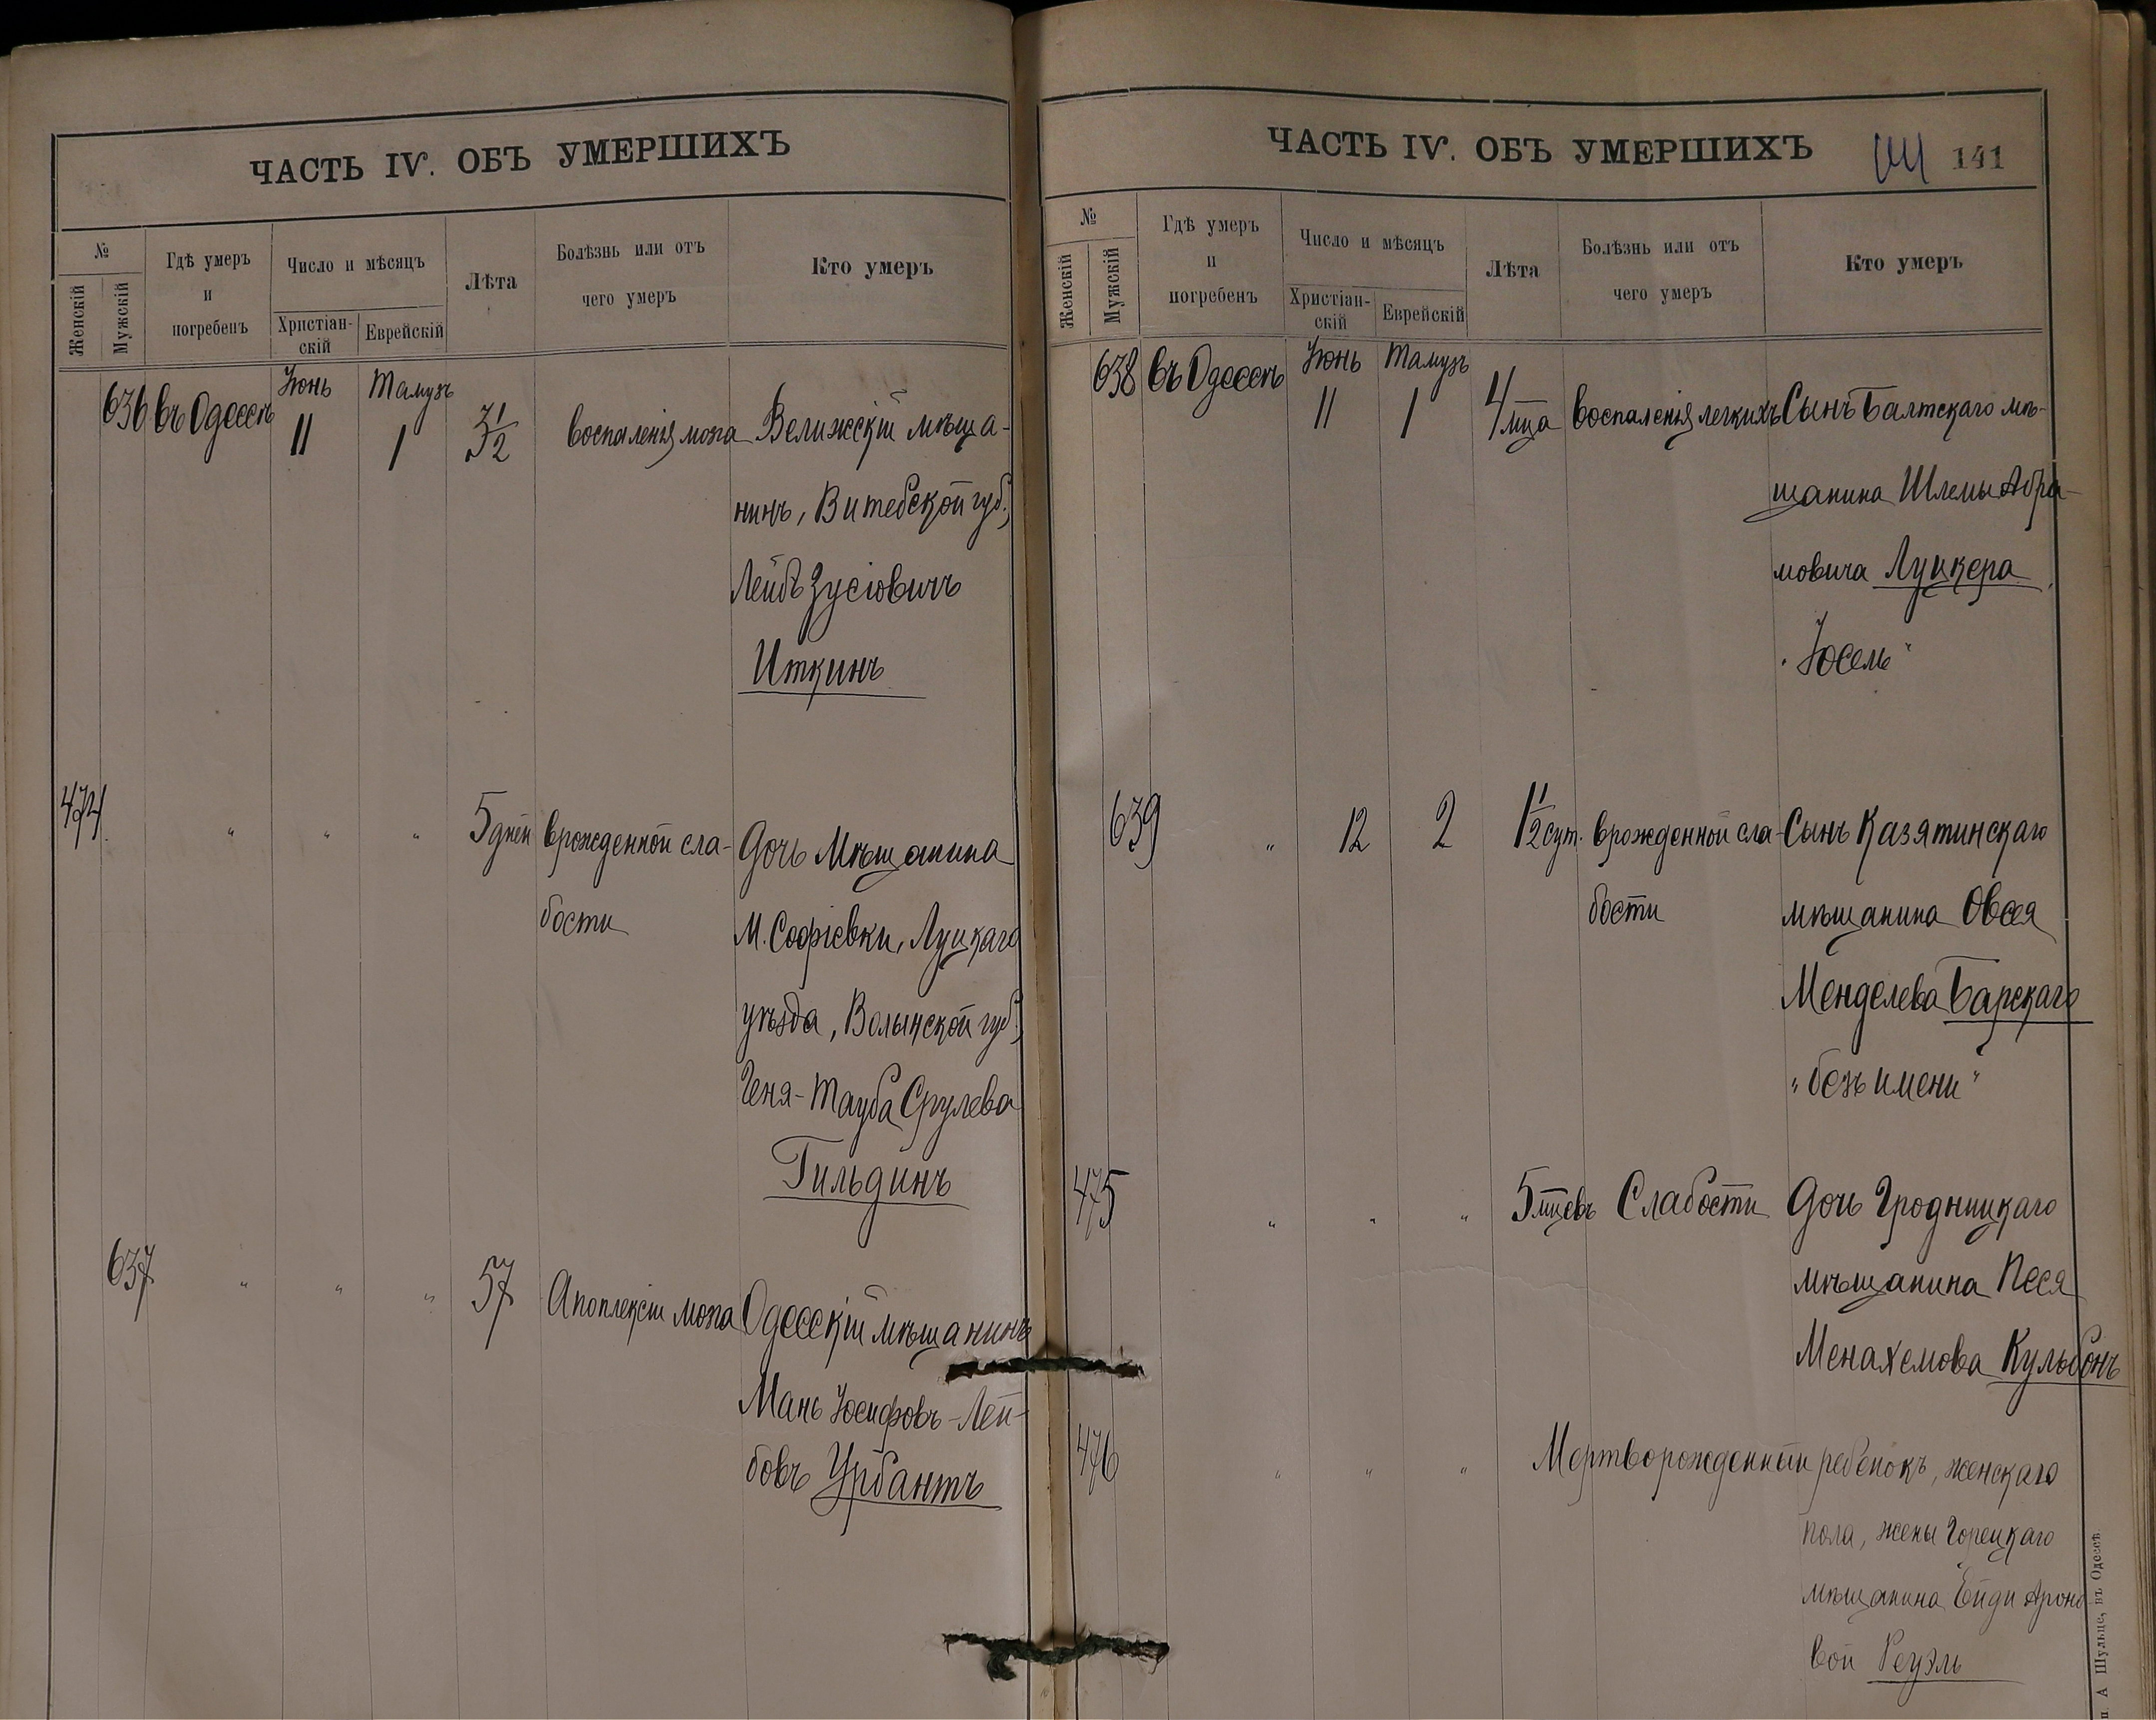 ЧАСТЬ IV. ОБЪ УМЕРШИХЪ
№
Женскій
Мужскій
Гдѣ умеръ
и
погребенъ
Число и мѣсяцъ
Христіан-
скій
Еврейскій
Лѣта
Болѣзнь или отъ
чего умеръ
Кто умеръ
636 въ Одессѣ Іюнь 11 Тамузъ 1 3 1/2 воспаленія мозга Велижскій мѣща-
нинъ, Витебской губ.,
Лейбъ Зусіовичъ
Иткинъ
474 " " " 5 дней врожденной сла- Дочь мѣщанина
бости М. Софіевки, Луцкаго
уѣзда, Волынской губ.,
Геня-Тауба Срулева
Гильдинъ
637 " " " 57 Апоплексіи мозга Одесскій мѣщанинъ
Мань Іосифовъ-Лей-
бовъ Урбантъ
ЧАСТЬ IV. ОБЪ УМЕРШИХЪ 141
№
Женскій
Мужскій
Гдѣ умеръ
и
погребенъ
Число и мѣсяцъ
Христіан-
скій
Еврейскій
Лѣта
Болѣзнь или отъ
чего умеръ
Кто умеръ
638 въ Одессѣ Іюнь 11 Тамузъ 1 4 мца воспаленія легкихъ Сынъ Балтскаго мѣ-
щанина Шлемы Абра-
мовича Луцкера
"Іосель"
639 " 12 2 1 1/2 сут. врожденной сла- Сынъ Казятинскаго
бости мѣщанина Овсея
Менделева Барскаго
"безъ имени"
475 " " " 5 мцевъ Слабости Дочь Гродницкаго
мѣщанина Песя
Менахемова Кульбонъ
476 " " " Мертворожденный ребенокъ, женскаго
пола, жены Горецкаго
мѣщанина Ейди Ароно
вой Реуэль
А Шульце, въ Одессѣ